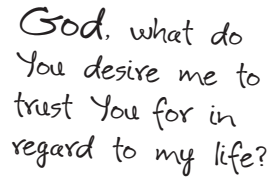 God, what do
You desire me to
trust You for in
regard to my life?